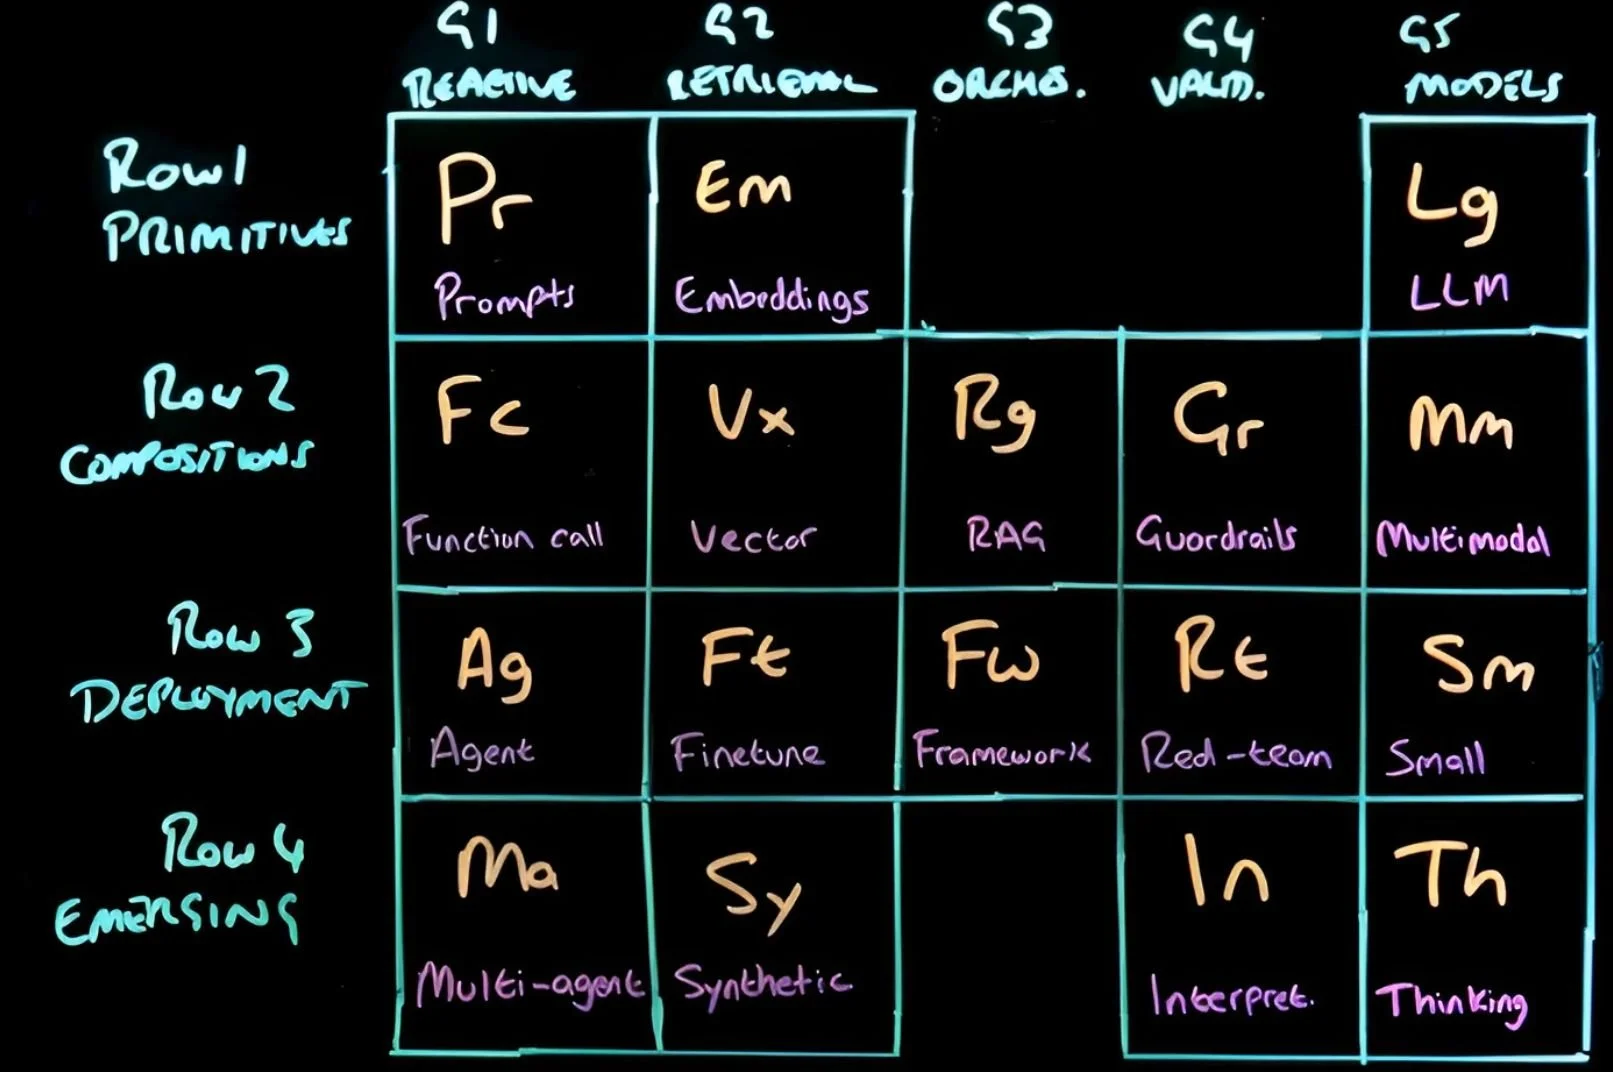 G1 G2 G3 G4 G5
REACTIVE RETRIEVAL ORCHS. VALID. MODELS
Row 1
PRIMITIVES
Pr Em Lg
Prompts Embeddings LLM
Row 2
COMPOSITIONS
Fc Vx Rg Gr Mm
Function call Vector RAG Guardrails Multimodal
Row 3
DEPLOYMENT
Ag Ft Fw Rt Sm
Agent Finetune Framework Red-team Small
Row 4
EMERGING
Ma Sy In Th
Multi-agent Synthetic Interpret. Thinking